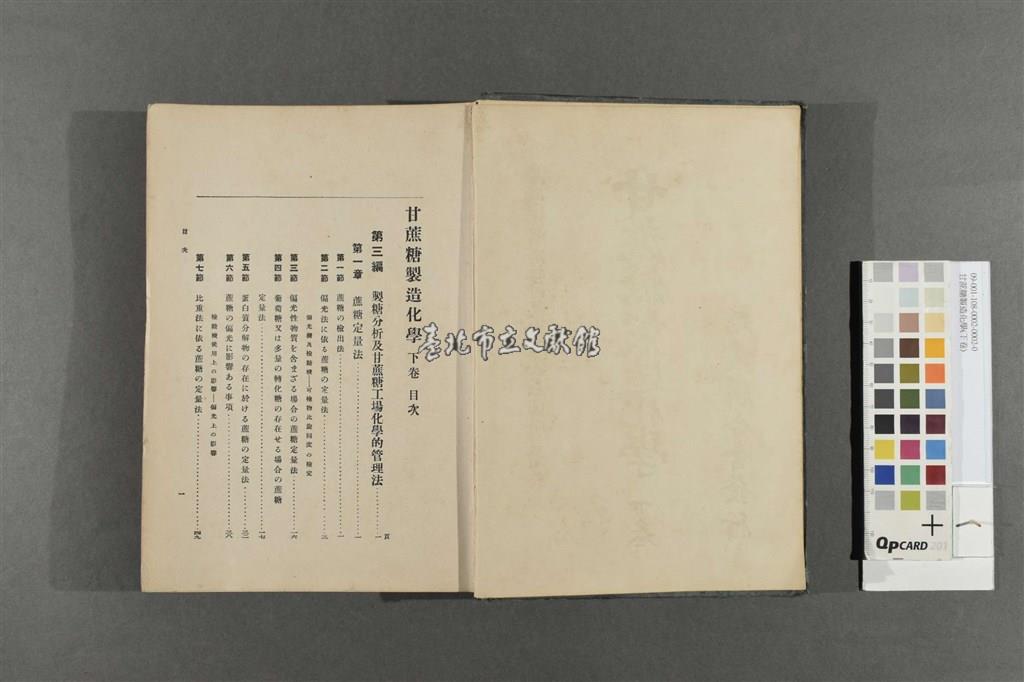 甘蔗糖製造化學 下卷 目次
頁
第三編 製糖分析及甘蔗糖工場化學的管理法……一
第一章 蔗糖定量法……一
第一節 蔗糖の檢出法……一
第二節 偏光法に依る蔗糖の定量法……三
偏光計及檢糖機—可檢物比旋回度の檢定
第三節 偏光性物質を含まざる場合の蔗糖定量法……一六
第四節 葡萄糖又は多量の轉化糖の存在せる場合の蔗糖
定量法……一七
第五節 蛋白質分解物の存在に於ける蔗糖の定量法
第六節 蔗糖の偏光に影響ある事項
檢糖機使用上の影響—偏光上の影響
第七節 比重法に依る蔗糖の定量法……四九
目次
一
臺北市立文獻館
09-001-108-0002-0002-0
甘蔗糖製造化學(下卷)
QPCARD 201